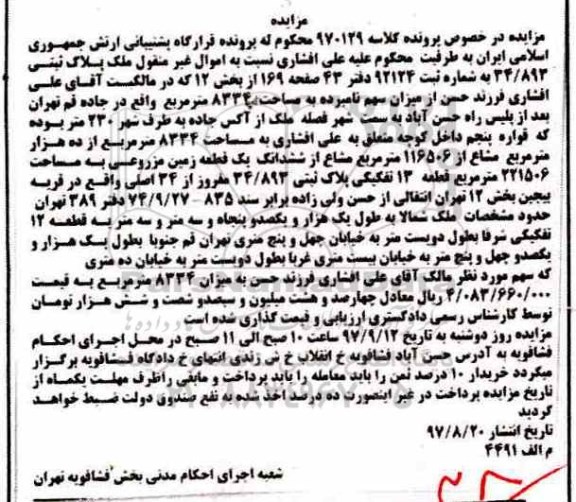 مزایده
مزایده در خصوص پرونده کلاسه ۹۷۰۱۲۹ محکوم له پرونده قرارگاه پشتیبانی ارتش جمهوری
اسلامی ایران به طرفیت محکوم علیه علی افشاری نسبت به اموال غیر منقول ملک پلاک ثبتی
۳۴/۸۹۳ به شماره ثبت ۹۲۱۲۴ دفتر ۴۳ صفحه ۱۶۹ از بخش ۱۲ که در مالکیت آقای علی
افشاری فرزند حسن از میزان سهم نامبرده به مساحت ۸۳۳۴ مترمربع واقع در جاده قم تهران
بعد از پلیس راه حسن آباد به سمت شهر فصله ملک از آکس جاده به طرف شهر ۲۳۰ متر بوده
که قواره پنجم داخل کوچه متعلق به علی افشاری به مساحت ۸۳۳۴ مترمربع از ده هزار
مترمربع مشاع از ۱۱۶۵۰۶ مترمربع مشاع از ششدانگ یک قطعه زمین مزروعی به مساحت
۲۲۱۵۰۶ مترمربع قطعه ۱۳ تفکیکی پلاک ثبتی ۳۴/۸۹۳ مفروز از ۳۴ اصلی واقع در قریه
بیجین بخش ۱۲ تهران انتقالی از حسن ولی زاده برابر سند ۸۳۵ - ۷۴/۹/۲۷ دفتر ۳۸۹ تهران
حدود مشخصات ملک شمالا به طول یک هزار و یکصدو پنجاه و سه متر و سه متر به قطعه ۱۲
تفکیکی شرقا بطول دویست متر به خیابان چهل و پنج متری تهران قم جنوبا بطول یک هزار و
یکصدو چهل و پنج متر به خیابان بیست متری غربا بطول دویست متر به خیابان ده متری
که سهم مورد نظر مالک آقای علی افشاری فرزند حسن به میزان ۸۳۳۴ مترمربع به قیمت
۴/۰۸۳/۶۶۰/۰۰۰ ریال معادل چهارصد و هشت میلیون و سیصدو شصت و شش هزار تومان
توسط کارشناس رسمی دادگستری ارزیابی و قیمت گذاری شده است
مزایده روز دوشنبه به تاریخ ۹۷/۹/۱۲ ساعت ۱۰ صبح الی ۱۱ صبح در محل اجرای احکام
فشافویه به آدرس حسن آباد فشافویه خ انقلاب خ ش زندی انتهای خ دادگاه فشافویه برگزار
میگردد خریدار ۱۰ درصد ثمن را باید معامله را باید پرداخت و مابقی راظرف مهلت یکماه از
تاریخ مزایده پرداخت در غیر اینصورت ده درصد اخذ شده به نفع صندوق دولت ضبط خواهد
گردید
تاریخ انتشار ۹۷/۸/۲۰
م الف ۴۴۹۱
شعبه اجرای احکام مدنی بخش فشافویه تهران